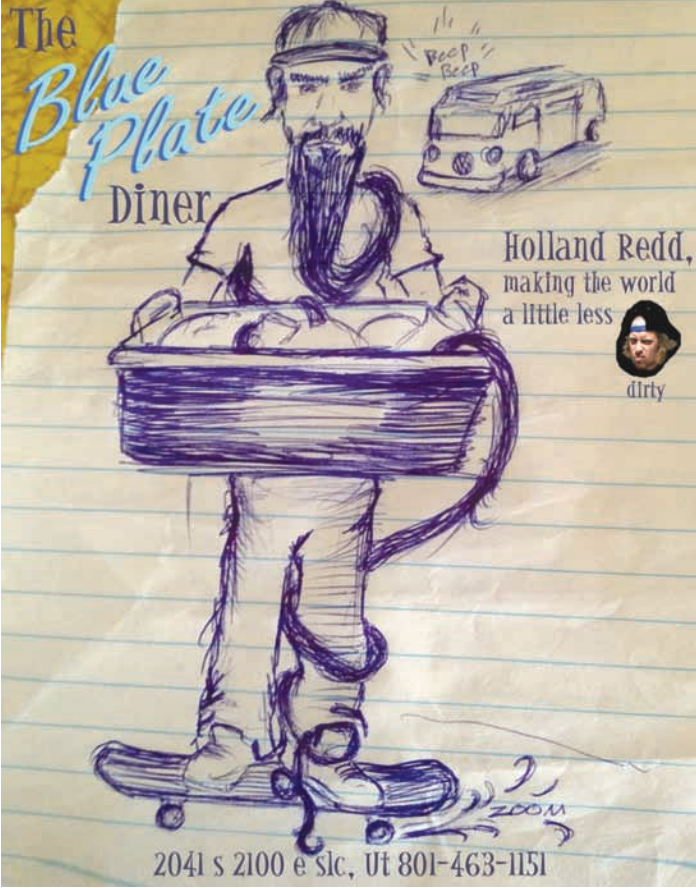 The
Blue
Plate
Diner
Beep
Beep
Holland Redd,
making the world
a little less
dirty
ZOOM
2041 s 2100 e slc, Ut 801-463-1151